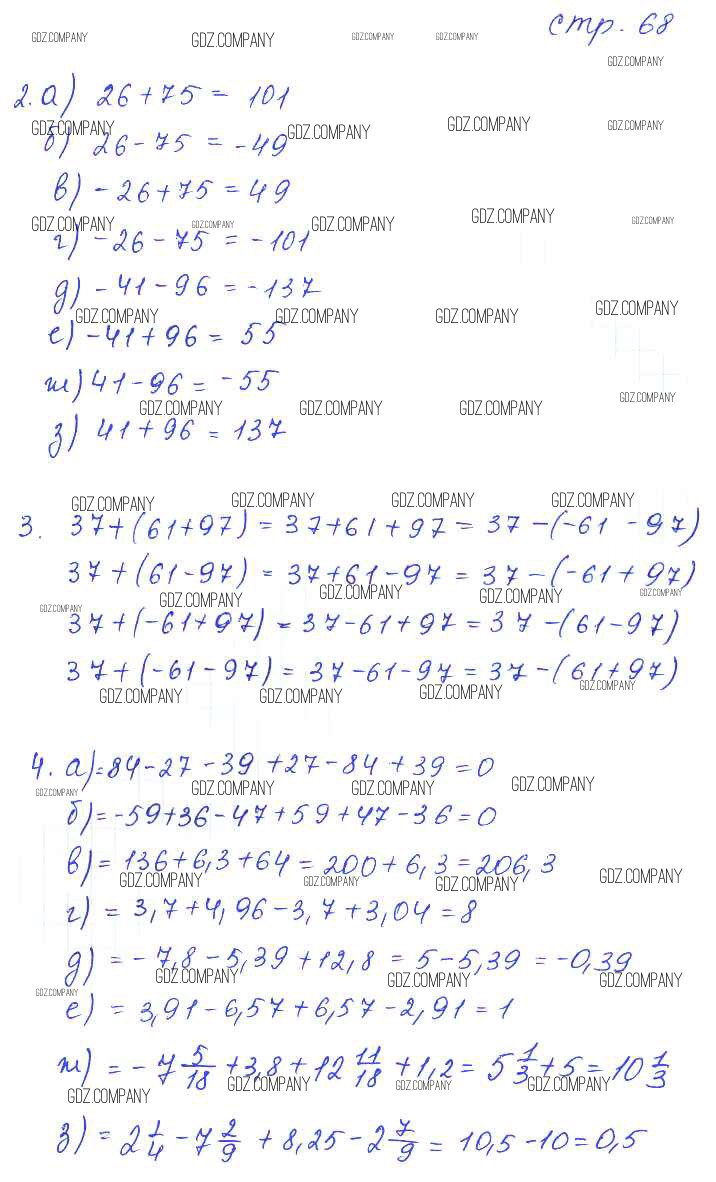 GDZ.COMPANY GDZ.COMPANY GDZ.COMPANY GDZ.COMPANY стр. 68
GDZ.COMPANY
2. а) 26 + 75 = 101
GDZ.COMPANY GDZ.COMPANY GDZ.COMPANY GDZ.COMPANY
б) 26 - 75 = -49
в) - 26 + 75 = 49
GDZ.COMPANY GDZ.COMPANY GDZ.COMPANY GDZ.COMPANY GDZ.COMPANY
г) - 26 - 75 = - 101
д) - 41 - 96 = - 137
GDZ.COMPANY GDZ.COMPANY GDZ.COMPANY GDZ.COMPANY
е) - 41 + 96 = 55
ж) 41 - 96 = - 55
GDZ.COMPANY GDZ.COMPANY GDZ.COMPANY GDZ.COMPANY
з) 41 + 96 = 137
GDZ.COMPANY GDZ.COMPANY GDZ.COMPANY GDZ.COMPANY
3. 37 + (61 + 97) = 37 + 61 + 97 = 37 - (-61 - 97)
37 + (61 - 97) = 37 + 61 - 97 = 37 - (-61 + 97)
GDZ.COMPANY GDZ.COMPANY GDZ.COMPANY GDZ.COMPANY GDZ.COMPANY
37 + (-61 + 97) = 37 - 61 + 97 = 37 - (61 - 97)
37 + (-61 - 97) = 37 - 61 - 97 = 37 - (61 + 97)
GDZ.COMPANY GDZ.COMPANY GDZ.COMPANY GDZ.COMPANY
4. а) = 84 - 27 - 39 + 27 - 84 + 39 = 0
GDZ.COMPANY GDZ.COMPANY GDZ.COMPANY GDZ.COMPANY
б) = - 59 + 36 - 47 + 59 + 47 - 36 = 0
в) = 136 + 6,3 + 64 = 200 + 6,3 = 206,3
GDZ.COMPANY GDZ.COMPANY GDZ.COMPANY GDZ.COMPANY
г) = 3,7 + 4,96 - 3,7 + 3,04 = 8
д) = - 7,8 - 5,39 + 12,8 = 5 - 5,39 = - 0,39
GDZ.COMPANY GDZ.COMPANY GDZ.COMPANY GDZ.COMPANY
е) = 3,91 - 6,57 + 6,57 - 2,91 = 1
ж) = - 7 5/18 + 3,8 + 12 11/18 + 1,2 = 5 1/3 + 5 = 10 1/3
GDZ.COMPANY GDZ.COMPANY GDZ.COMPANY GDZ.COMPANY
з) = 2 1/4 - 7 2/9 + 8,25 - 2 7/9 = 10,5 - 10 = 0,5